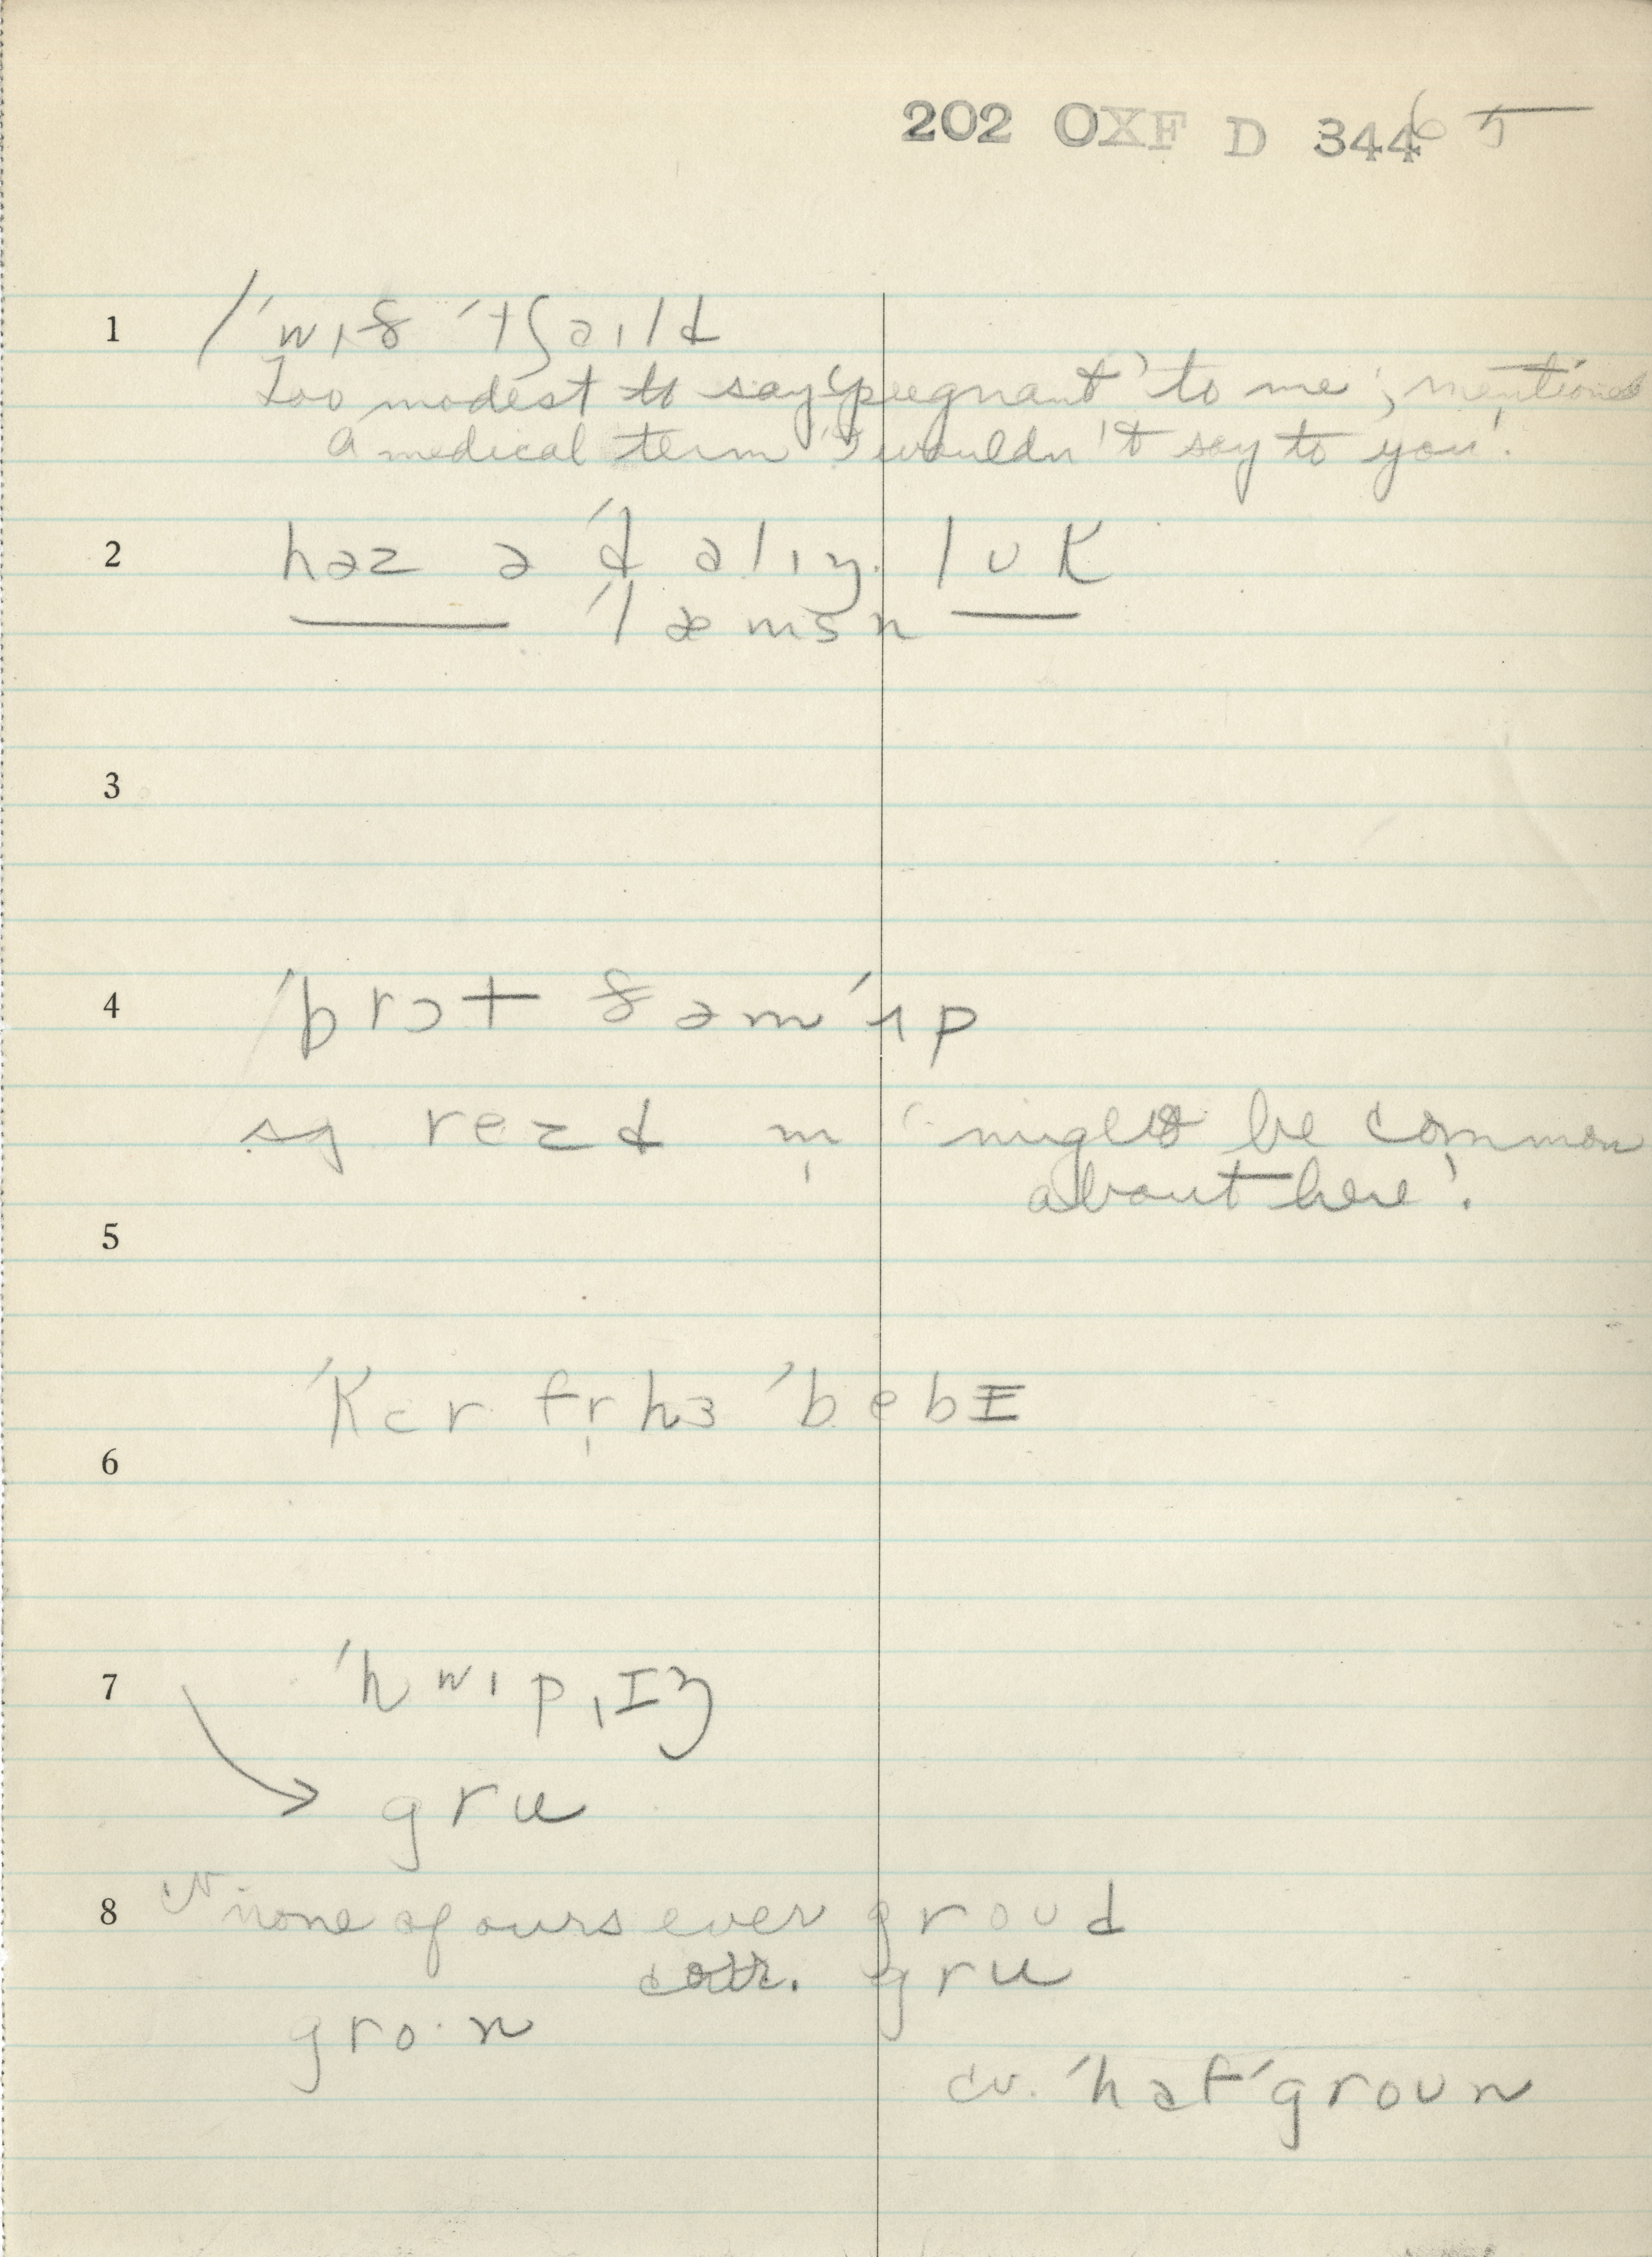 202 OXF D 344 65
1 / ˈwɪð ˈtʃaɪld
Too modest to say 'pregnant' to me; mentioned
a medical term 'I wouldn't say to you'.
2 haz ə ˈdalɪŋ lʊk
ˈlæmsn
3
4 ˈbrɔt ðəm ˈʌp
sg rezd m̩ 'might be common
about here'.
5
ˈkɛr fr̩ hɜ ˈbebɪ
6
7 ˈhwɪpˌɪŋ
→ gru
8 cv none of ours ever groud
corr. gru
gro·n
cv. ˈhaf ˈgroun